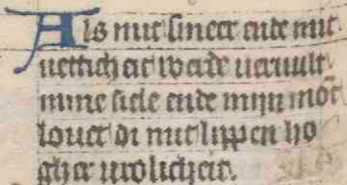 Als mit smeer ende mit
vetticheit werde vervult
mine siele ende mijn mōt
lovet di mit lippen ho
gher vrolicheit.